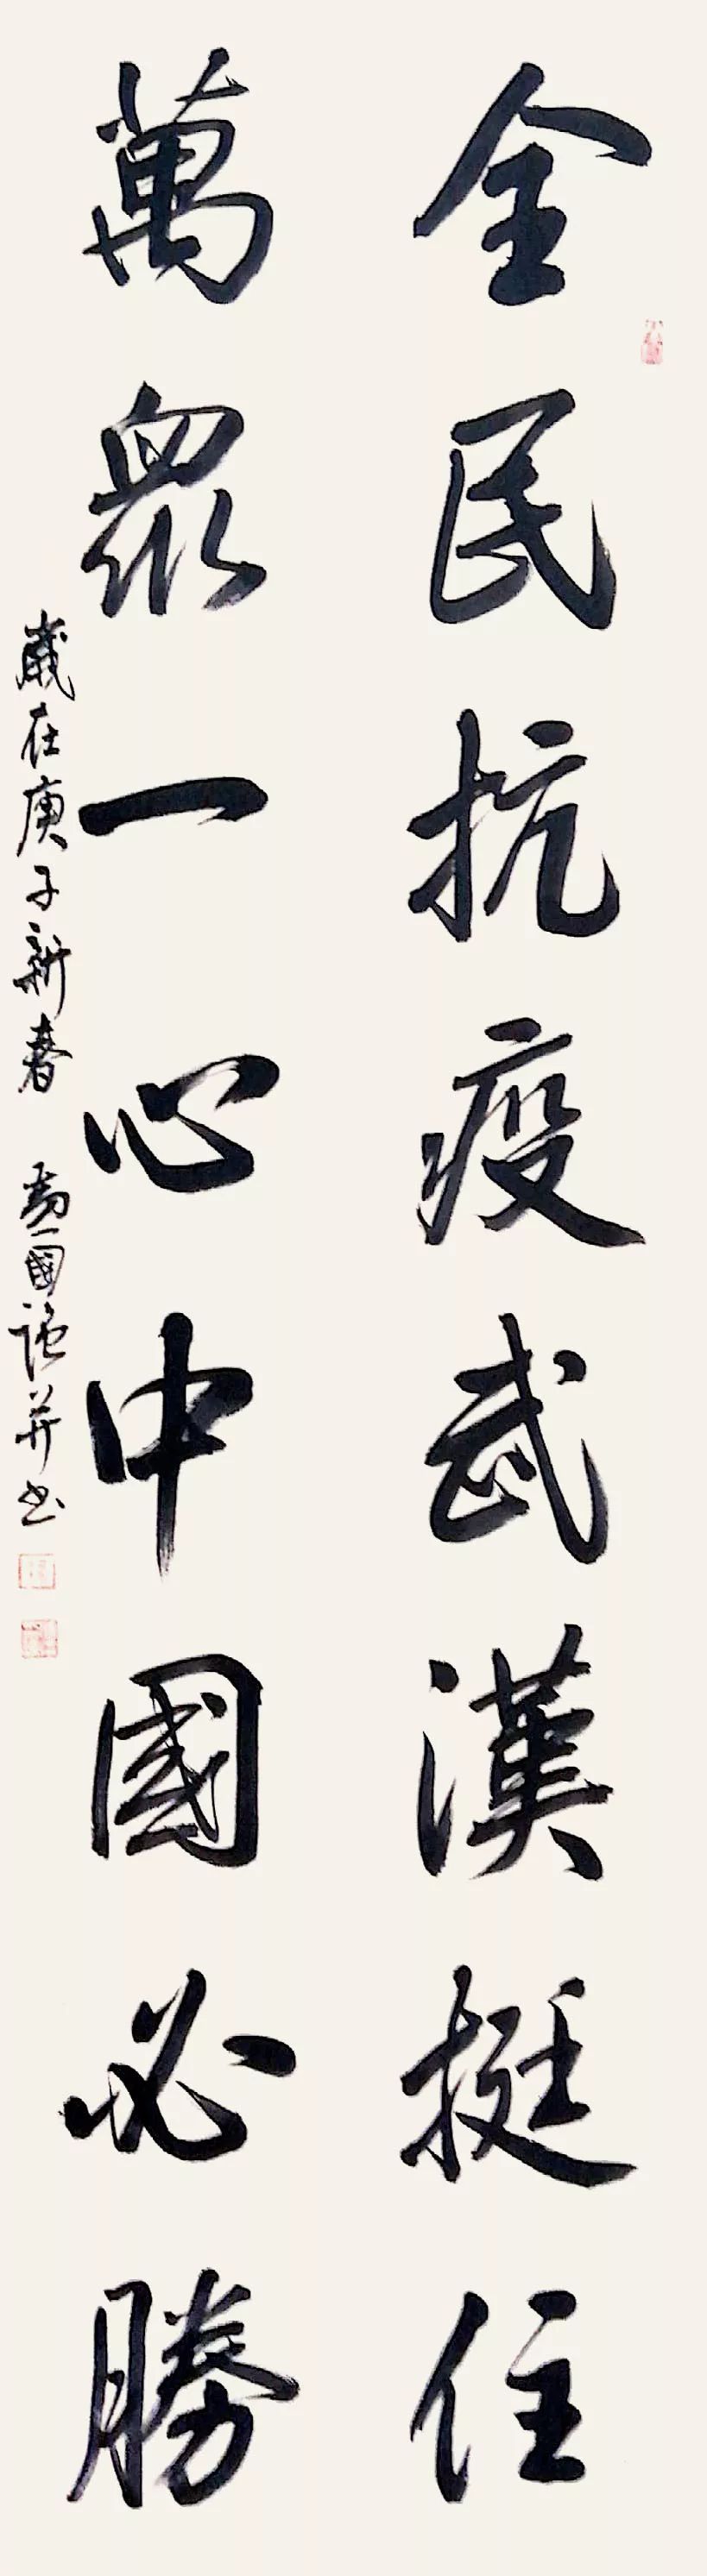 全民抗疫武漢挺住
萬眾一心中國必勝
歲在庚子新春 國強并书